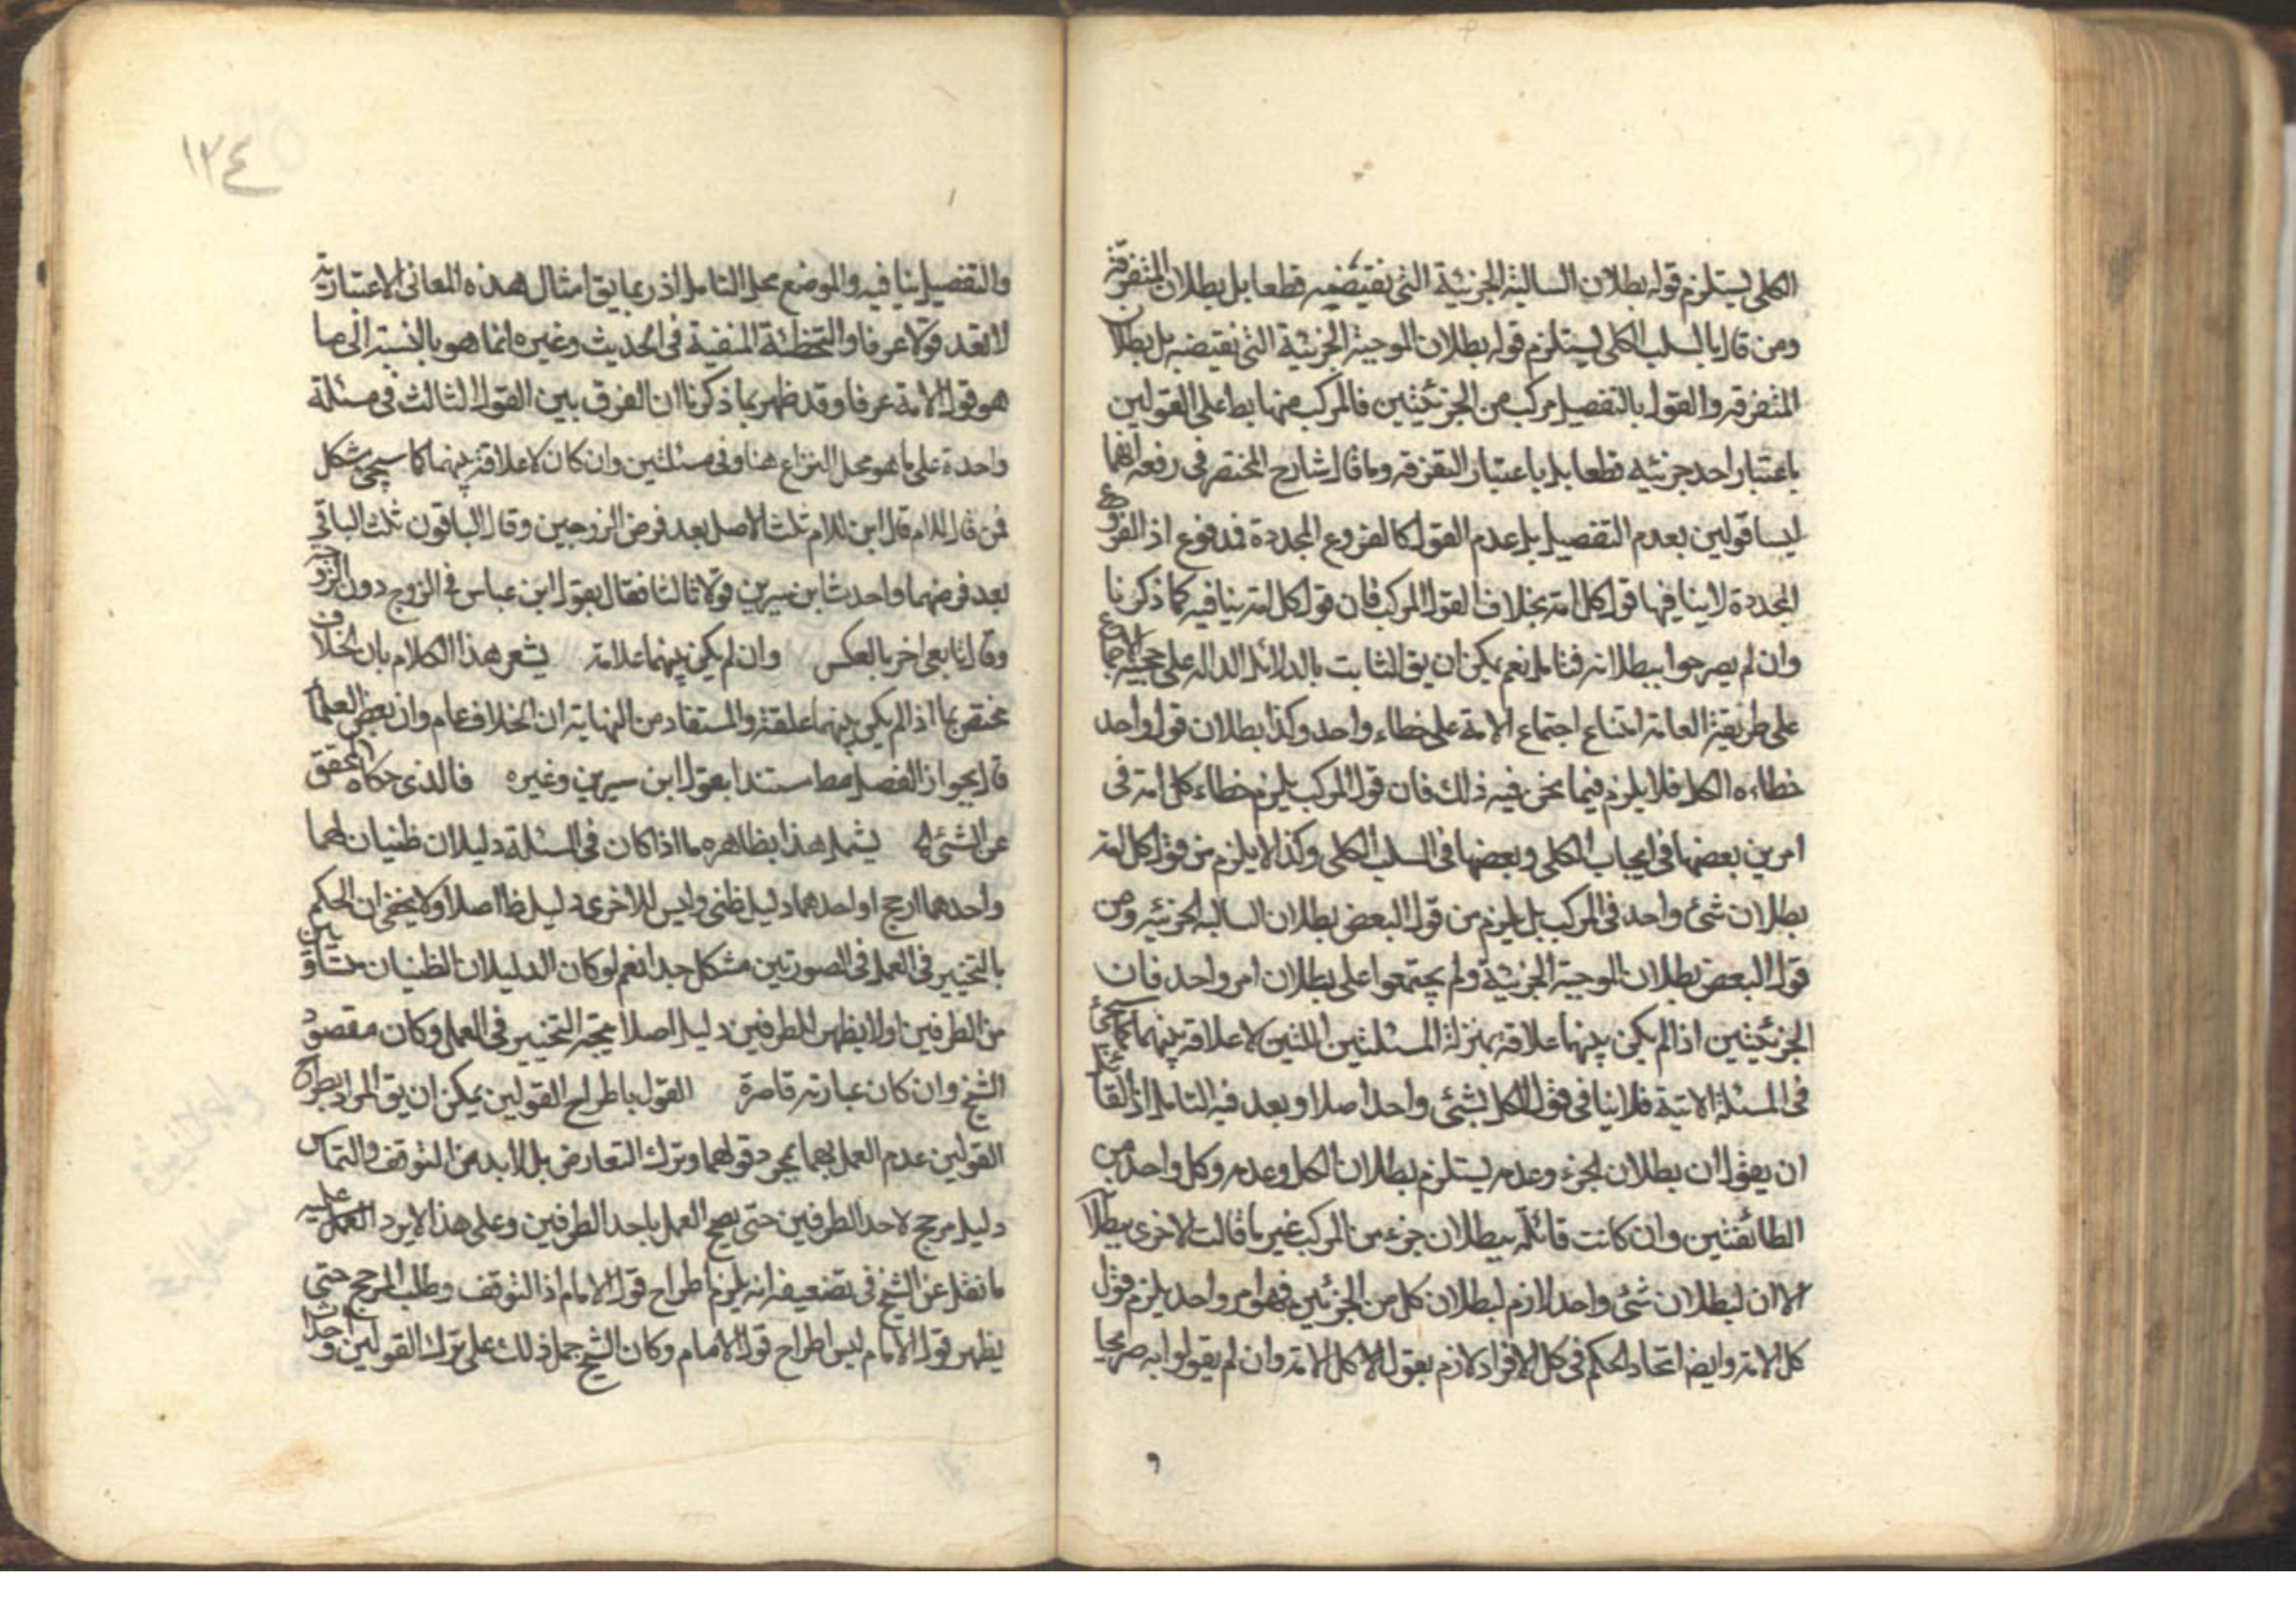 الكلي يستلزم قوله بطلان السالبة الجزئية التي نقيضه قطعا بل بطلان المتفرقة
ومن قال بالسلب الكلي يستلزم قوله بطلان الموجبة الجزئية التي نقيضه بل بطلان
المتفرقه والقول بالتفصيل مركب من الجزئيتين فالمركب منها بط على القولين
باعتبار احد جزئيه قطعا بل باعتبار التفرقه وما قال شارح المختصر في رفعه انهما
ليسا قولين بعدم التفصيل بل عدم القول كالفروع المجددة فمدفوع اذ الفروع
المجددة لا ينافيها قول كل امة بخلاف القول المركب فان قول كل امة ينافيه كما ذكرنا
وان لم يصرحوا ببطلانه فتامل نعم يمكن ان يق الثابت بالدلائل الداله على حجية الاجماع
على طريقة العامة امتناع اجتماع الامة على خطاء واحد وكذا بطلان قول واحد
خطاءه الكل فلا يلزم فيما نحن فيه ذلك فان قول المركب يلزم خطاء كل امة في
امرين بعضها في ايجاب الكلي وبعضها في السلب الكلي وكذا لا يلزم من قول كل امة
بطلان شئ واحد في المركب بل يلزم من قول البعض بطلان السالبه الجزئيه ومن
قول البعض بطلان الموجبة الجزئية ولم يجتمعوا على بطلان امر واحد فان
الجزئيتين اذا لم يكن بينهما علاقة بمنزلة المسئلتين اللتين لا علاقة بينهما كما سيجئ
في المسئلة الاتية فلا ينافي قول الكل بشئ واحد اصلا وبعد فيه التامل اذ لقائل
ان يقول ان بطلان الجزء وعدمه يستلزم بطلان الكل وعدمه وكل واحد من
الطائفتين وان كانت قائلة ببطلان جزء من المركب غير ما قالت الاخرى ببطلانه
الا ان لبطلان شئ واحد لازم لبطلان كل من الجزئين فهو امر واحد يلزم قول
كل الامة وايضا اتحاد الحكم في كل الافراد لازم بقول الا كل الامة وان لم يقولوا به صريحا
١٣٤
والتفصيل ينافيه والموضع محل التامل اذ ربما يق امثال هذه المعاني الاعتبارية
لا تعد قولا عرفا والتخطئة المنفية في الحديث وغيره انما هو بالنسبة الى ما
هو قول الامة عرفا وقد ظهر بما ذكرنا ان الفرق بين القول الثالث في مسئلة
واحدة على ما هو محل النزاع هنا وفي مسئلتين وان كان لا علاقة بينهما كما سيجئ مشكل
فمن قال للام قال ابن للام ثلث الاصل بعد فرض الزوجين وقال الباقون ثلث الباقي
بعد فرضهما واحدث ابن سيرين قولا ثالثا فقال بقول ابن عباس في الزوج دون الزوجة
وقال تابعي اخر بالعكس وان لم يكن بينهما علاقة يشعر هذا الكلام بان الخلاف
مختص بما اذا لم يكن بينهما علقة والمستفاد من النهاية ان الخلاف عام وان بعض العلماء
قال بجواز الفصل مط مستندا بقول ابن سيرين وغيره فالذي حكاه المحقق
عن الشئ يشمل هذا بظاهره ما اذا كان في المسئلة دليلان ظنيان لهما
واحدهما ارجح او احدهما دليل ظني وليس للاخرى دليل ظا اصلا ولا يخفى ان الحكم
بالتخيير في العمل في الصورتين مشكل جدا نعم لو كان الدليلان الظنيان متساويين
من الطرفين او لا يظهر للطرفين دليل اصلا يتجه التخيير في العمل وكان مقصود
الشيخ وان كان عبارته قاصرة القول باطراح القولين يمكن ان يق المراد بطراح
القولين عدم العمل بهما بمجرد قولهما وترك التعارض بل لابد من التوقف والتماس
دليل مرجح لاحد الطرفين حتى يصح العمل باحد الطرفين وعلى هذا لا يرد العمل عليه
ما نقل عن الشيخ في تضعيفه انه يلزم اطراح قول الامام اذ التوقف وطلب المرجح حتى
يظهر قول الامام ليس اطراح قول الامام وكان الشيخ حمل ذلك على ترك القولين واحداث